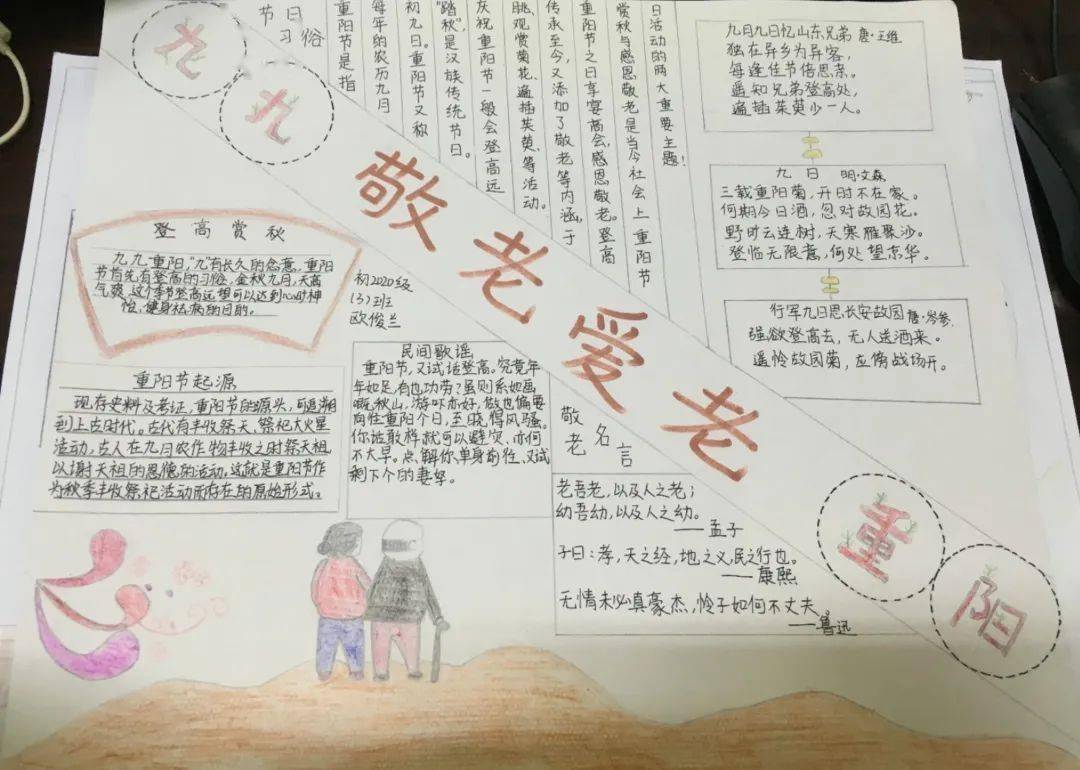 九九
敬老爱老
重阳
节日
习俗
重阳节是指
每年的农历九月
初九日。重阳节又称
“踏秋”,是汉族传统节日。
庆祝重阳节一般会登高远
眺、观赏菊花、遍插茱萸、等活动。
传承至今,又添加了敬老等内涵,于
重阳节之日享宴高会,感恩敬老。登高
赏秋与感恩敬老是当今社会上重阳节
日活动的两大重要主题!
九月九日忆山东兄弟 唐·王维
独在异乡为异客,
每逢佳节倍思亲。
遥知兄弟登高处,
遍插茱萸少一人。
九日 明·文森
三载重阳菊,开时不在家。
何期今日酒,忽对故园花。
野旷云连树,天寒雁聚沙。
登临无限意,何处望京华。
行军九日思长安故园 唐·岑参
强欲登高去,无人送酒来。
遥怜故园菊,应傍战场开。
登高赏秋
九九重阳,“九”有长久的念意,重阳
节首先有登高的习俗,金秋九月,天高
气爽,这个季节登高远望可以达到心旷神
怡、健身祛病的目的。
初2020级
(3)班
欧俊兰
重阳节起源
现存史料及考证,重阳节的源头,可追溯
到上古时代。古代有丰收祭天、祭祀大火星
活动,古人在九月农作物丰收之时祭天祖,
以谢天祖的恩德的活动。这就是重阳节作
为秋季丰收祭祀活动而存在的原始形式。
民间歌谣
重阳节,又试话登高。究竟年
年如是,有也功劳?虽则系如画
嘅秋山,游吓亦好,做也偏要
向住重阳个日,至晓得风骚。
你话敢样就可以避灾、亦何
不大早。点解你单身前往,又试
剩下个的妻孥。
敬老名言
老吾老,以及人之老;
幼吾幼,以及人之幼。
——孟子
子曰:孝,天之经,地之义,民之行也。
——康熙
无情未必真豪杰,怜子如何不丈夫。
——鲁迅